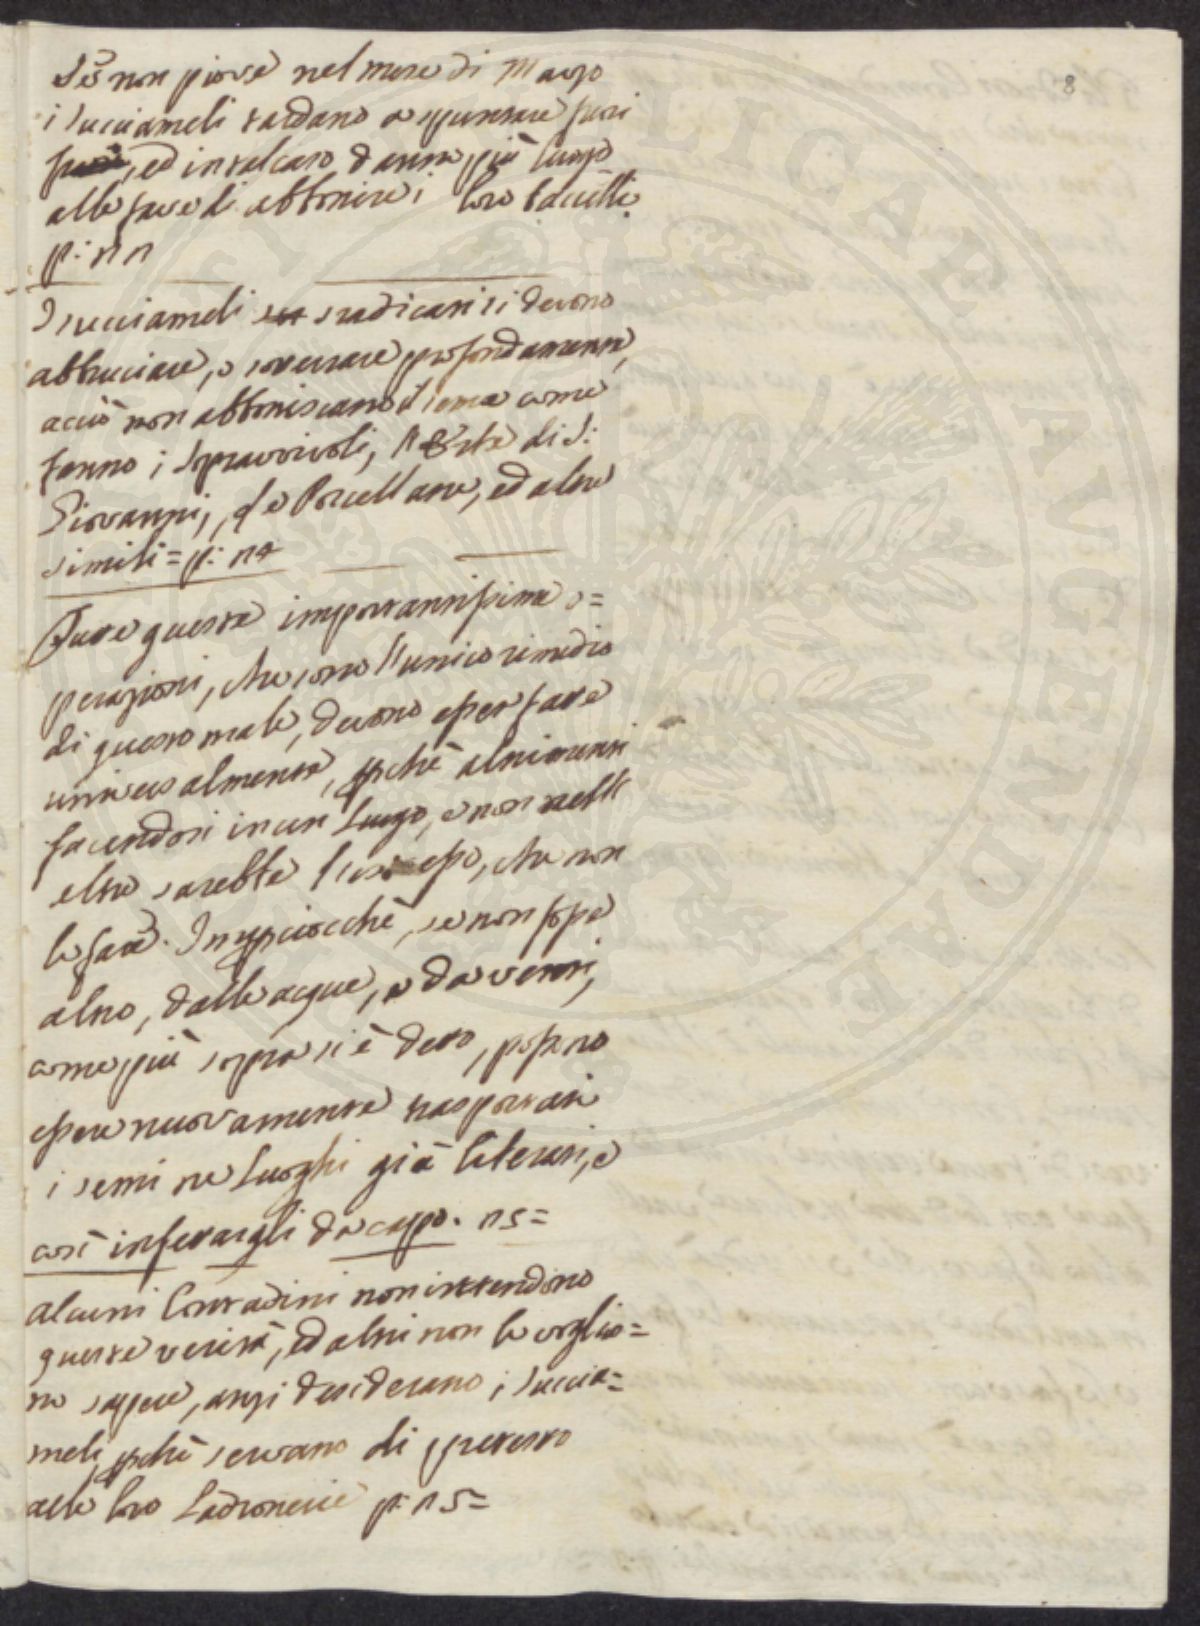 8
Se non piove nel mese di Marzo
i succiameli tardano a spuntare furi
ed in tal caso danno più luogo
alle fave di abbonire i loro baccelli
p: 11
I succiameli sradicati si devono
abbruciare, o sotterrare profondamente,
acciò non abboniscano il seme come
fanno i Sopravvivoli, l'Erbe di S:
Giovanni, le Porcellane, ed altre
simili = p: 14
Tutte queste importantissime o=
perazioni, che sono l'unico rimedio
di questo male, devono esser fatte
universalmente, pchè altrimenti
facendosi in un Luogo, e non nelli
altri sarebbe l'istesso, che non
le fare. Impciocchè, se non fosse
altro, dalle acque, e da venti,
come più sopra si è detto, possono
essere nuovamente trasportati
i semi ne Luoghi già liberati, e
così infettargli da cappo. 15=
Alcuni Contadini non intendono
queste verità, ed altri non le voglio=
no sapere, anzi desiderano i succia=
meli pchè servano di pretesto
alle loro Ladronerie p: 15=
SUMPTIBUS PUBLICAE AUGENDAE